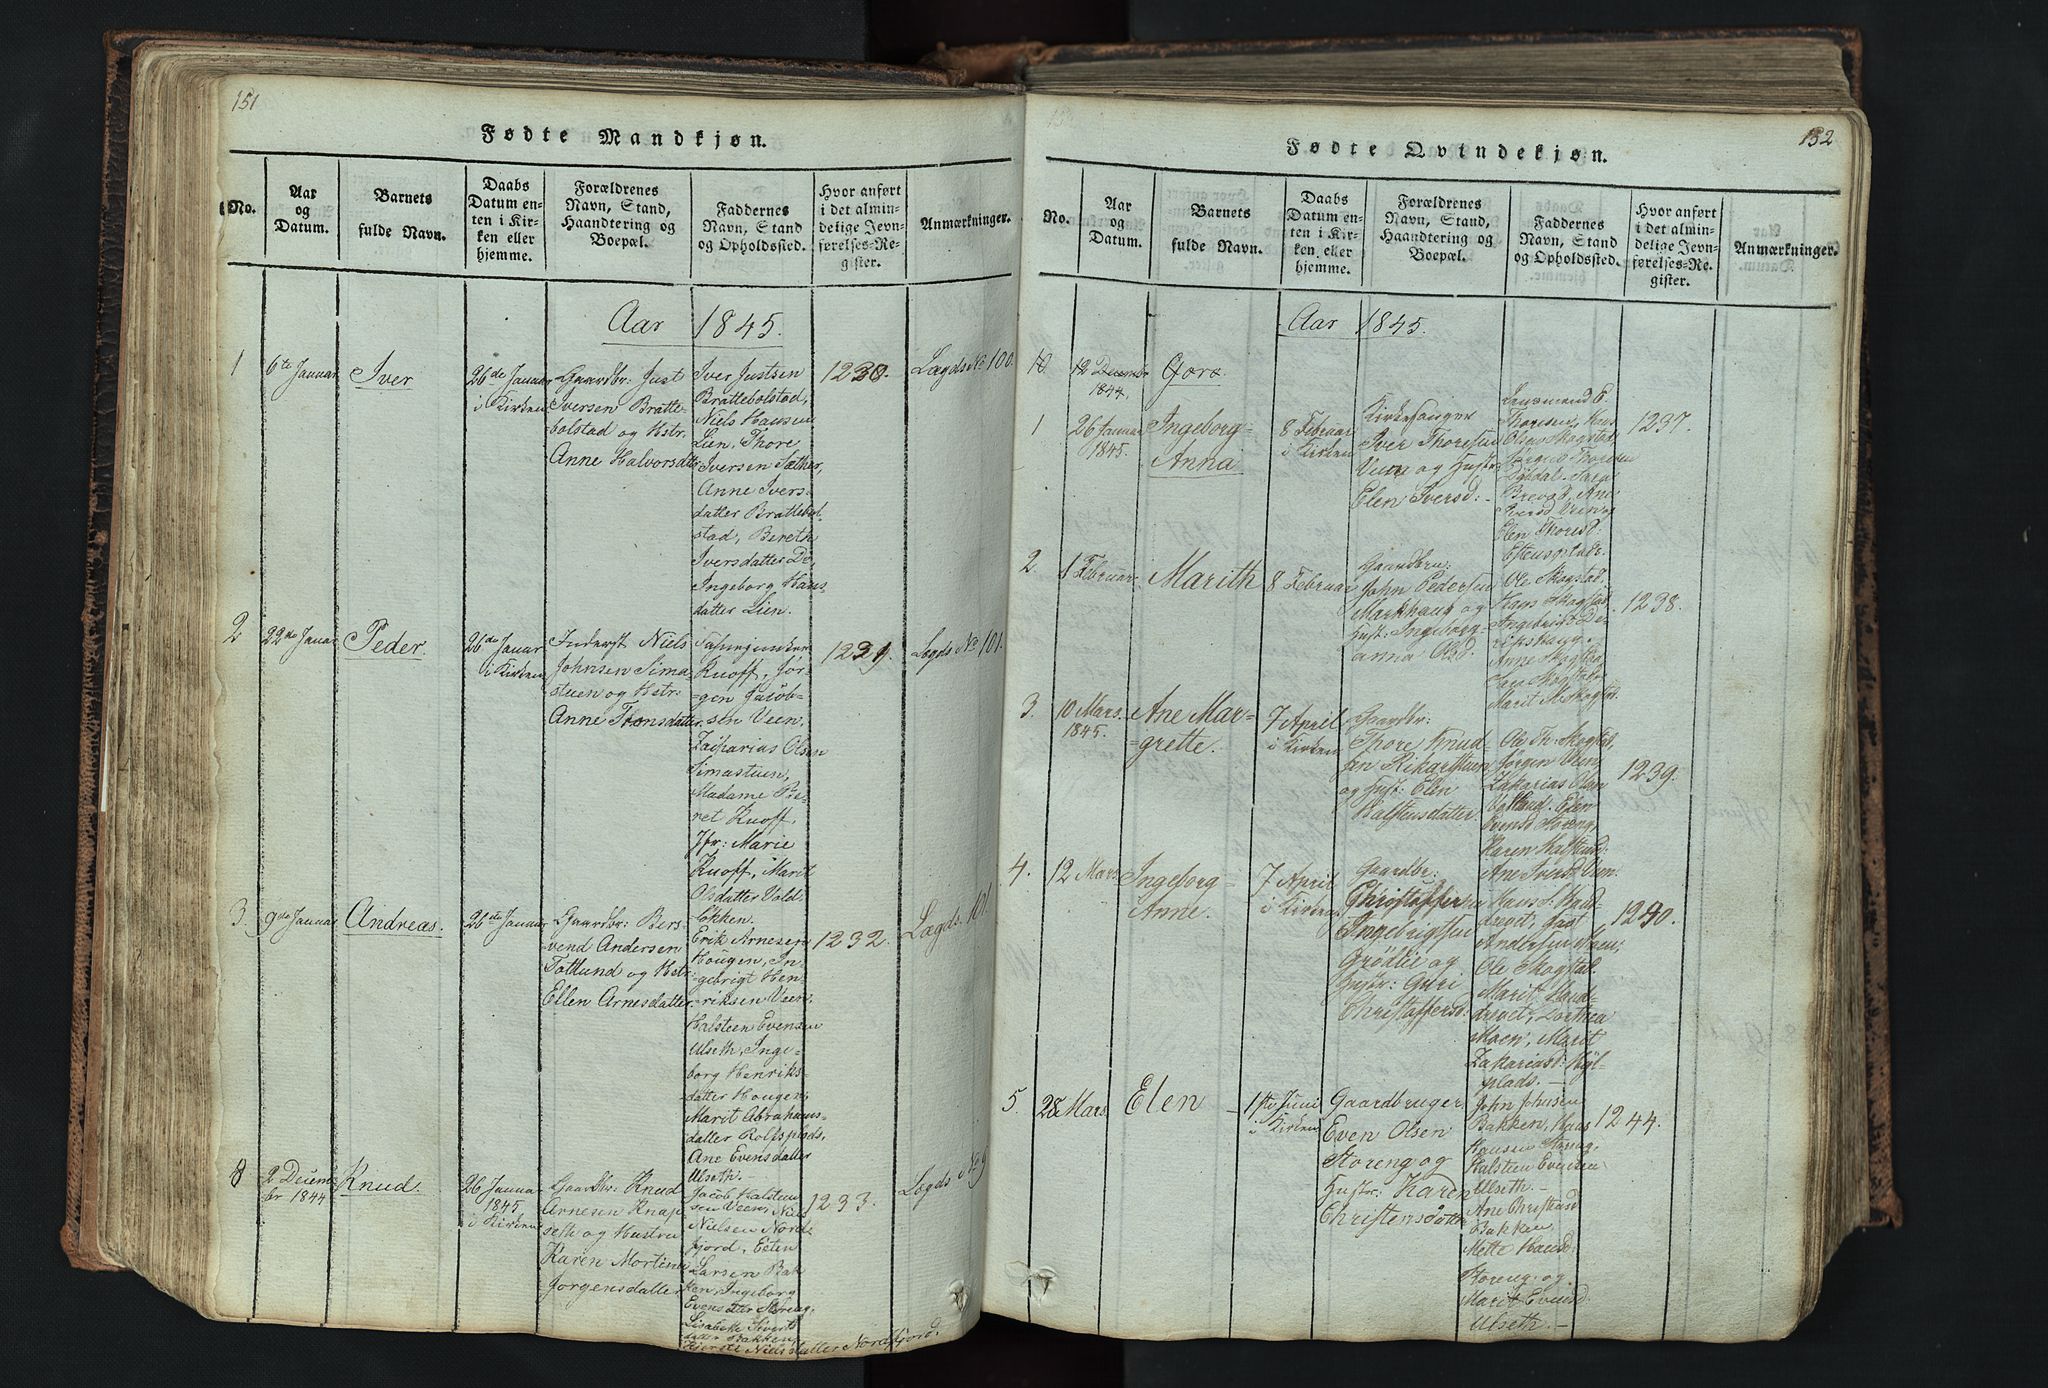 151
Fødte Mandkjøn.
No.
Aar
og
Datum.
Barnets
fulde Navn.
Daabs
Datum en-
ten i Kir-
ken eller
hjemme.
Forældrenes
Navn, Stand,
Haandtering og
Boepæl.
Faddernes
Navn, Stand
og Opholdssted.
Hvor anført
i det almin-
delige Jevn-
førelses-Re-
gister.
Anmærkninger.
Aar 1845.
1
6te Januar
Iver
26de Januar
i Kirken
Gaardbr: Just
Iversen Bratte-
bolstad og Hstr.
Anne Halvorsdatter
Iver Justsen
Brattebolstad,
Niels Hansen
Lien, Thore
Iversen Sæther,
Anne Ivers-
datter Brattebol-
stad, Bereth
Iversdatter Do,
Ingeborg Hans
datter Lien.
1230.
Lægds No 100.
2
22de Januar
Peder.
26de Januar
i Kirken
Inderst Niels
Johnsen Sima-
stuen og Hstr:
Anne Tronsdatter
Knoff, Jør-
gen Jacob-
sen Veen.
Zacharias Olsen
Simastuen,
Madame Be-
ret Knoff,
Jfr: Marie
Knoff, Marit
Olsdatter Vold.
1231
Lægds No 101.
3.
9de Januar
Andreas.
26de Januar
Gaardbr: Ber-
vend Andersen
Totlund og Hstr:
Ellen Arnesdatter
Erik Arnesen
Hougen, In-
gebrigt Hen-
riksen Veen,
Halsteen Evensen
Ulseth, Inge-
borg Henriks-
datter Hougen,
Marit Abrahams-
datter Rolfsplads,
Ane Evensdatter
Ulseth.-
1232.
Lægds. 101.
8
2 Decem-
br 1844
Knud.
26 Januar
1845
i Kirken
Gaardbr: Knud
Arnesen Knap
seth og Hustru
Karen Martine
Jørgensdatter
Jacob Halsteen
sen Veen, Niels
Nielsen Nord-
fjord, Esten
Larsen Bak
ken, Ingeborg
Evensdtter Storeng,
Lisabeth Siverts
datter Bakken,
Nielsdatter Nordfjord.
1233.
Lægds No 9
152
Fødte Qvindekjøn.
No.
Aar
og
Datum.
Barnets
fulde Navn.
Daabs
Datum en-
ten i Kir-
ken eller
hjemme.
Forældrenes
Navn, Stand,
Haandtering og
Boepæl.
Faddernes
Navn, Stand
og Opholdssted.
Hvor anført
i det almin-
delige Jevn-
førelses-Re-
gister.
Anmærkninger.
Aar 1845.
10
12 December
1844.
Goro
1
26 Januar
1845.
Ingeborg-
Anna
8 Februar
i Kirken
Kirkesanger
Iver Thoresen
Veen og Hustr
Elen Iversd: -
Lensmand E
Thoresen, Hans
Olsen Skogstad,
Jørgen Thoresen
Elen Thoresd.
1237.
2
1 Februar
Marith
8 Februar
Gaardbru:
John Pedersen
Markhaug og
Hust: Ingeborg-
anna Olsd.
Ole Skogstad.
Hans Skogstad
Anne Skogstad,
Marit Skogstad
1238.
3.
10 Mars.
1845.
Ane Mar-
grette.
7 April
i Kirken
Gaardbr:
Thore Knud-
sen Rikarstuen
og Hust: Elen
Halstensdatter.
Ole Th: Skogstad,
Jørgen Veen,
Zakarias Olsen
Voldland. Elen
Evensd Storeng,
Karen Halstensd:
Ane Iversd Veen.
1239.
4.
12 Mars
Ingeborg
Anne.
7 April
i Kirken
Gaardbr:
Christoffersen
Ingebrigtsen
Grødlie og
Hustr: Guri
Christoffersd.
Andersen Moen;
Ole Skogstad.
Marit Land-
drevet, Dorthea
Moen, Marit
Zakariasd:
plads. -
1240.
5.
28 Mars.
Elen
1ste Juni
i Kirken
Gaardbruger
Even Olsen
Storeng og
Hustr: Karen
Christensdatter
John Johnsen
Bakken, Hans
Hansen Storeng,
Halsteen Evensen
Ulseth. -
Ane Christiansd
Bakken
Mette Hansd:
Storeng og
Marit Evensd:
Ulseth. -
1244.